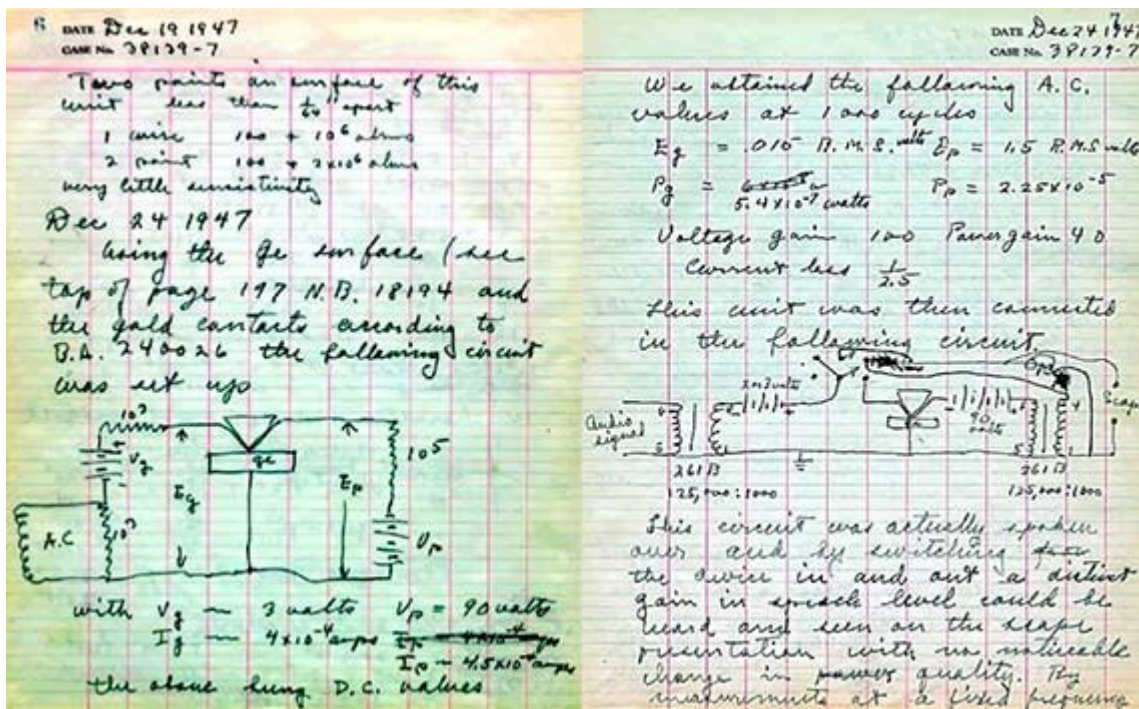 6
DATE Dec 19 1947
CASE No. 38139-7
Two points on surface of this
unit less than 1/60" apart
1 wire 100 + 10⁶ ohms
2 point 100 + 2x10⁶ ohms
very little sensistivity
Dec 24 1947
Using the ge surface (see
top of page 197 N.B. 18194 and
the gold contacts according to
B.A. 240026 the following circuit
was set up
10³
Vg
Eg
ge
Ep
10⁵
A.C
10³
Vp
with Vg ~ 3 volts Vp = 90 volts
Ig ~ 4x10⁻⁴ amps
Ip ~ 4.5x10⁻⁴ amps
the above being D.C. values
7
DATE Dec 24 1947
CASE No. 38139-7
We obtained the following A.C.
values at 1000 cycles
Eg = .015 R.M.S. volts Ep = 1.5 R.M.S volts
Pg = 5.4x10⁻⁷ watts Pp = 2.25x10⁻⁵
Voltage gain 100 Power gain 40
Current loss 1/2.5
This unit was then connected
in the following circuit
Audio signal
2 or 3 volts
90 volts
Scope
4
5
1
261B
125,000:1000
4
5
1
261B
125,000:1000
This circuit was actually spoken
over and by switching
the device in and out a distinct
gain in speech level could be
heard and seen on the scope
presentation with no noticeable
change in quality. By
measurements at a fixed frequency